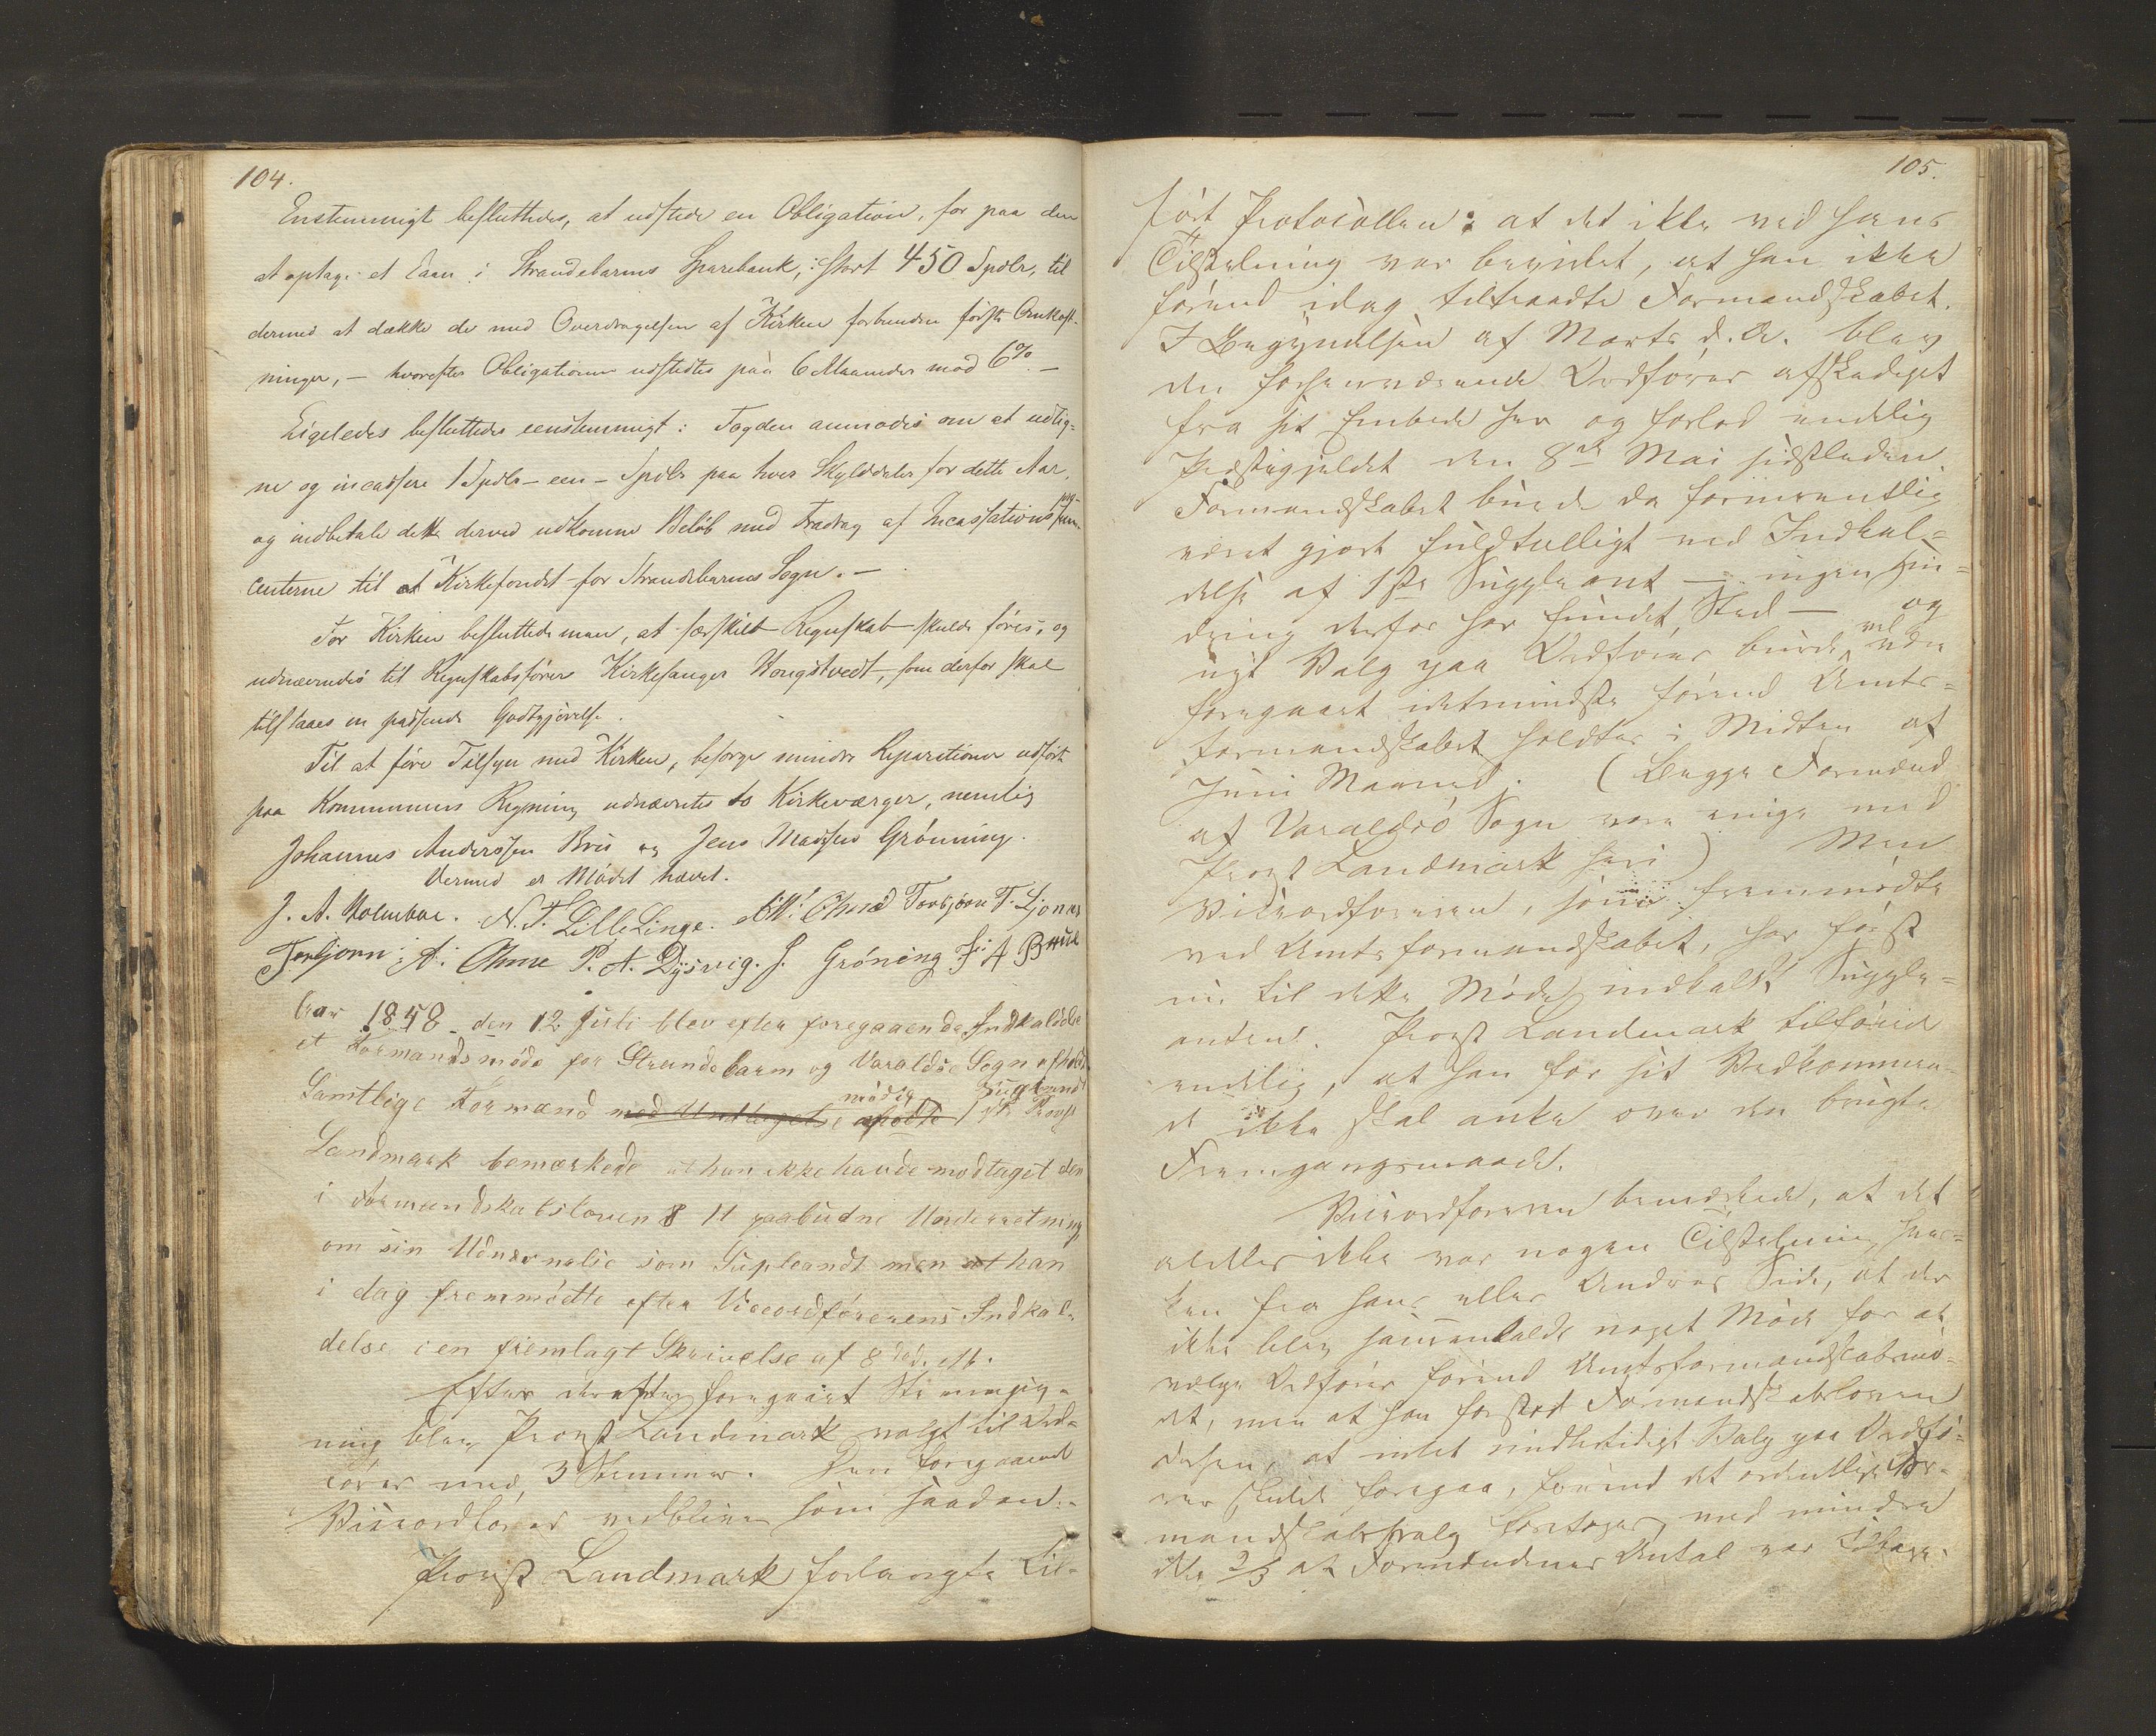 104.
Enstemmigt besluttedes, at udstede en Obligation, for paa den
at optage et Laan i Strandebarms Sparebank, stort 450 Spdlr, til
dermed at dække de med Overdragelsen af Kirken forbundne første Omkost-
ninger, – hvorefter Obligationen udstedtes paa 6 Maaneder mod 6%. –
Ligeledes besluttedes eenstemmigt: Fogden anmodes om at udlig-
ne og incassere 1 Spdlr – een – Spdlr paa hver Skylddaler for dette Aar,
og indbetale dette derved udkomne Beløb med Fradrag af Incassations
centerne til et Kirkefondet for Strandebarms Sogn. –
For Kirken besluttede man, at særskilt Regnskab skulde føres, og
udnævnedes til Regnskabsfører Kirkesanger Vongstvedt, som derfor skal
tilstaaes en passende Godtgjørelse.
Til at føre Tilsyn med Kirken, besørge mindre Reparationer udført
paa Kommunens Regning udnævntes to Kirkeværger, nemlig
Johannes Anderssen Brue og Jens Madsen Grønning.
Dermed er Mødet hævet.
J. A. Holmboe. N. T. Lille Linge. Ome Torbjørn T. Ljones
Torbjørn A. Ome P. A. Dysvig. J. Grøning J: A Brue
Aar 1858 den 12 Juli blev efter foregaaende Indkaldelse
et Formandsmøde for Strandebarm og Varaldsø Sogn afholdt
Samtlige Formænd med Undtagelse mødte mødte 1ste Supleandt Provst
Landmark bemærkede at han ikke havde modtaget den
i Formandskabsloven § 11 paabudne Underretning
om sin Udnævnelse som Supleandt men at han
i dag fremmødte efter Viceordførerens Indkal-
delse i en fremlagt Skrivelse af 8de ds. Mt.
Efter derefter foregaaet Stemmegiv-
ning blev Provst Landmark valgt til Ord-
fører med 3 Stemmer. Den foregaaende
Viceordfører vedbliver som saadan. –
Provst Landmark forlangte til-
105.
ført Protocollen: at det ikke ved hans
Tilstelning var bevirket, at han ikke
førend idag tiltraadte Formandskabet.
I Begyndelsen af Marts d. A. blev
den forhenværende Ordfører afskediget
fra sit Embede her og forlod endelig
Præstegjeldet den 8de Mai sidstleden.
Formandskabet burde da formeentlig
været gjort fuldtalligt ved Indkal-
delse af 1ste Suppleant – ingen Hin-
dring derfor har fundet Sted – og
nyt Valg paa Ordfører burde vel være
foregaaet idetmindste førend Amts-
formandskabet holdtes i Midten af
Juni Maaned. (Begge Formænd
af Varaldsø Sogn vare enige med
Provst Landmark heri) Men
Viceordføreren, som fremmødte
ved Amtsformandskabet, har først
nu til dette Møde indkaldt Supple-
anten. Provst Landmark tilføiede
endelig, at han for sit Vedkommen-
de ikke skal anke over den brugte
Fremgangsmaade.
Viceordføreren bemærkede, at det
aldeles ikke var nogen Tilstelning hver-
ken fra hans eller Andres Side, at der
ikke blev sammenkaldt noget Møde for at
vælge Ordfører førend Amtsformandskabsmø-
det, men at han forstod Formandskabsloven
derhen, at intet midlertidigt Valg paa Ordfø-
rer skulde foregaa, førend det ordentlige For-
mandskabsvalg foretoges, med mindre
ikke 2/3 af Formændenes Antal var tilbage.